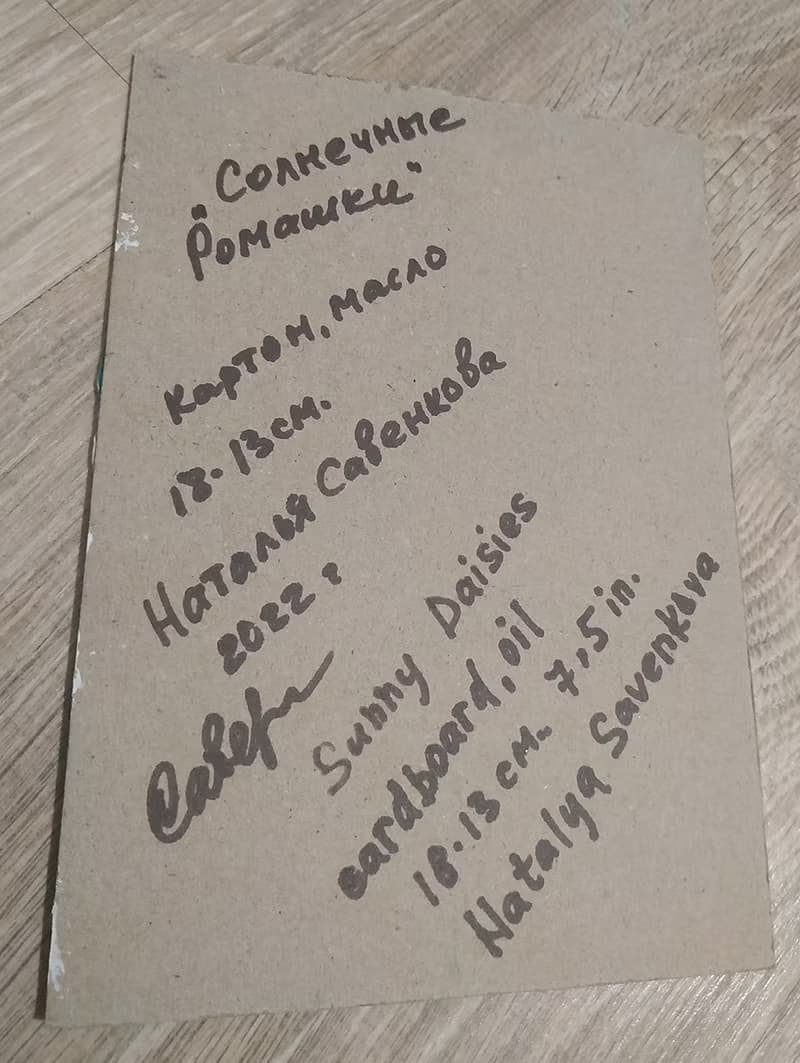 "Солнечные
Ромашки"
Картон, масло
18·13см.
Наталья Савенкова
2022 г
Sunny Daisies
cardboard, oil
18·13 см. 7,5 in.
Natalya Savenkova